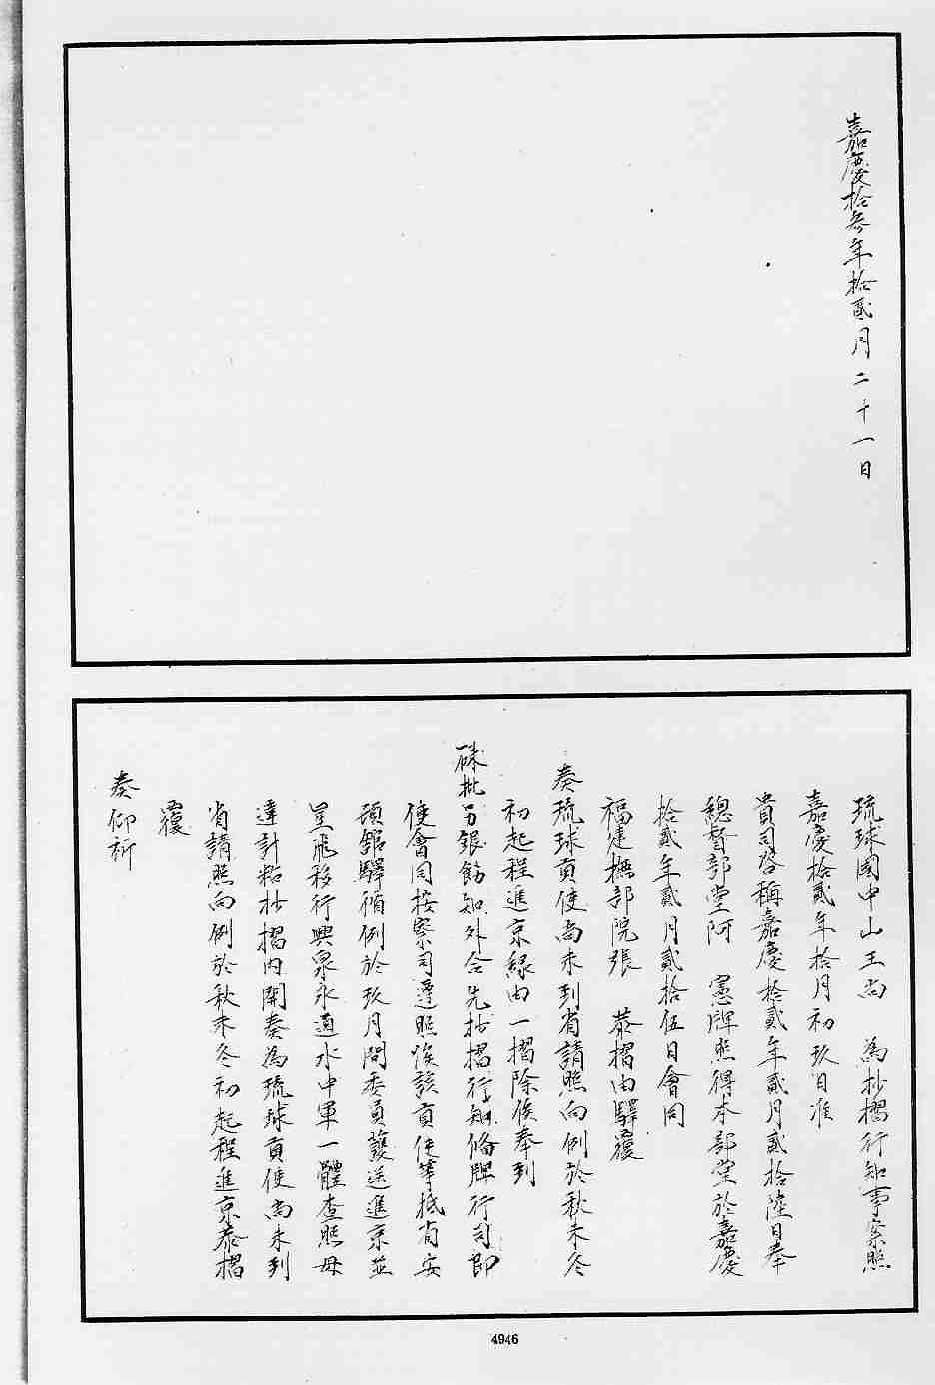 嘉慶拾參年拾貳月二十一日
琉球國中山王尚　為抄摺行知事案照
嘉慶拾貳年拾月初玖日准
貴司咨稱嘉慶拾貳年貳月貳拾陸日奉
總督部堂阿　憲牌照得本部堂於嘉慶
拾貳年貳月貳拾伍日會同
福建撫部院張　恭摺由驛覆
奏琉球貢使尚未到省請照向例於秋末冬
初起程進京緣由一摺除俟奉到
硃批另錄飭知外合先抄摺行知俻牌行司即
使會同按察司遵照俟該貢使等抵省安
頓館驛循例於玖月間委員護送進京並
呈飛移行興泉永道水中軍一體查照毋
違計粘抄摺內開奏為琉球貢使尚未到
省請照向例於秋末冬初起程進京恭摺
覆
奏仰祈
4946